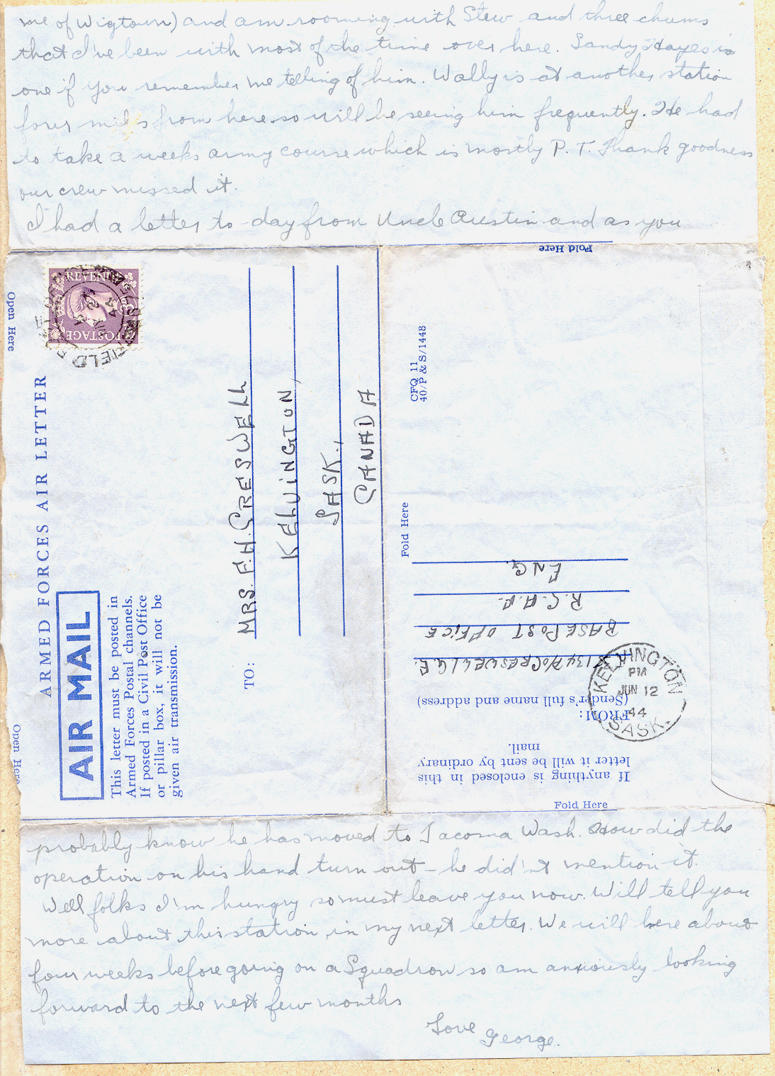 me of Wigtown) and am rooming with Stew and three chums
that I've been with most of the time over here. Sandy Hayes is
one if you remember me telling of him. Wally is at another station
four miles from here so will be seeing him frequently. He had
to take a weeks army course which is mostly P.T. Thank goodness
our crew missed it.
I had a letter to-day from Uncle Austin and as you
Fold Here
Open Here
REVENUE
POSTAGE
FIELD
ARMED FORCES AIR LETTER
AIR MAIL
This letter must be posted in
Armed Forces Postal channels.
If posted in a Civil Post Office
or pillar box, it will not be
given air transmission.
Open Here
TO:
MRS. F.H. CRESWELL
KELVINGTON,
SASK.,
CANADA
CFQ 11
40/P & S/1448
Fold Here
If anything is enclosed in this
letter it will be sent by ordinary
mail.
FROM:
(Sender's full name and address)
CRESWELL G.E.
BASE POST OFFICE
R.C.A.F.
ENG.
KELVINGTON
PM
JUN 12
44
SASK.
Fold Here
probably know he has moved to Tacoma Wash. How did the
operation on his hand turn out - he didn't mention it.
Well folks I'm hungry so must leave you now. Will tell you
more about this station in my next letter. We will here about
four weeks before going on a Squadron so am anxiously looking
forward to the next few months
Love
George.